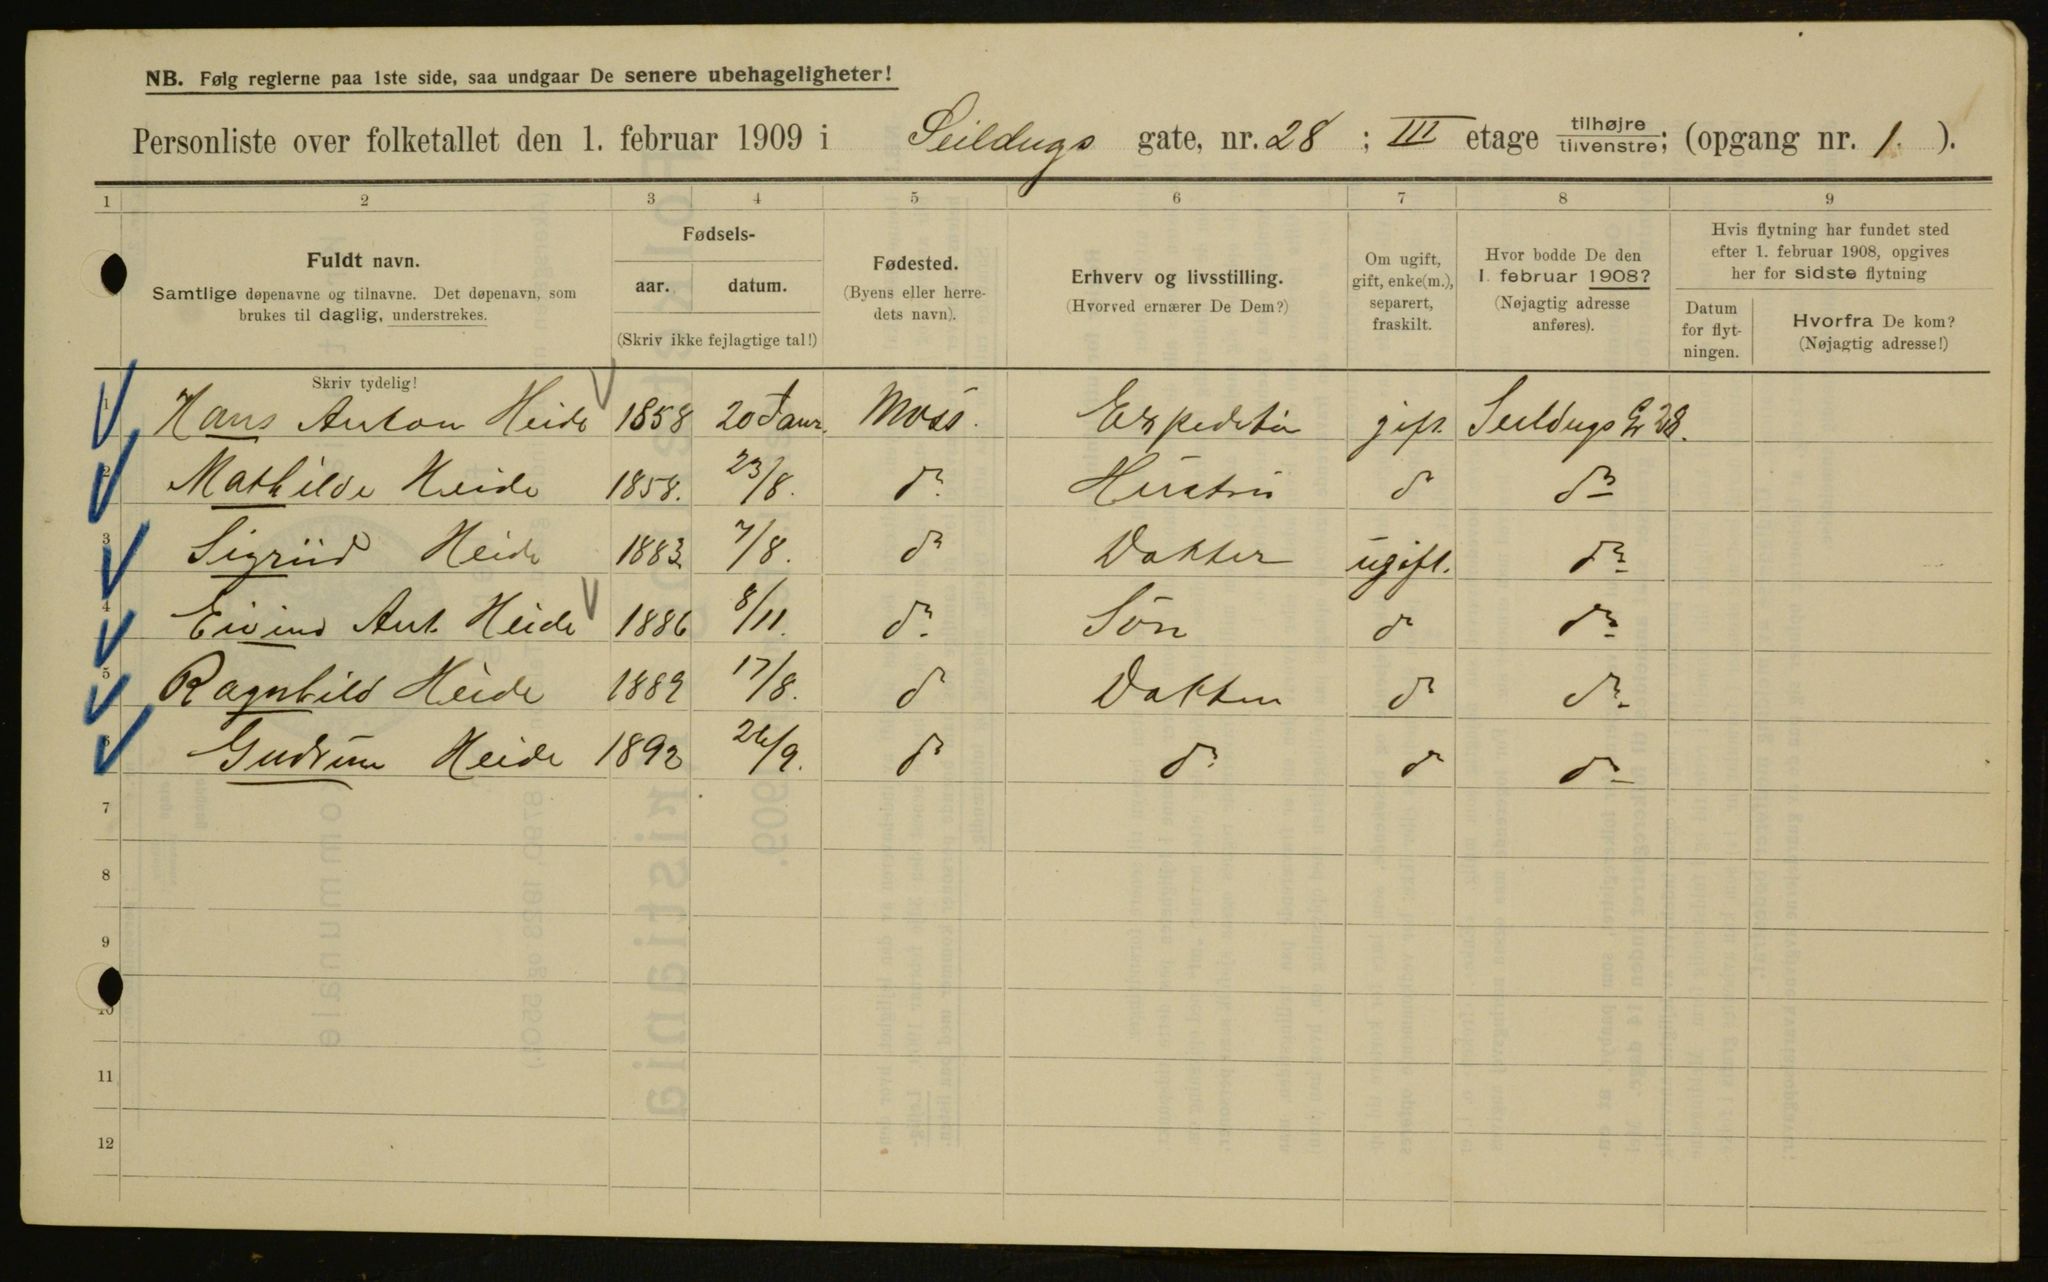 NB. Følg reglerne paa 1ste side, saa undgaar De senere ubehageligheter!
Personliste over folketallet den 1. februar 1909 i Seildugs gate, nr. 28 ; III etage tilhøjre tilvenstre; (opgang nr. 1. ).
1 2 3 4 5 6 7 8 9
Fuldt navn.
Samtlige døpenavne og tilnavne. Det døpenavn, som
brukes til daglig, understrekes.
Skriv tydelig!
Fødsels-
aar. datum.
(Skriv ikke fejlagtige tal!)
Fødested.
(Byens eller herre-
dets navn).
Erhverv og livsstilling.
(Hvorved ernærer De Dem?)
Om ugift,
gift, enke(m.),
separert,
fraskilt.
Hvor bodde De den
1. februar 1908?
(Nøjagtig adresse
anføres).
Hvis flytning har fundet sted
efter 1. februar 1908, opgives
her for sidste flytning
Datum
for flyt-
ningen.
Hvorfra De kom?
(Nøjagtig adresse!)
1 Hans Anton Heide 1858 20 Janr. Moss. Expeditør gift. Seildugs Gr 28.
2 Mathilde Heide 1858. 23/8. do. Hustru do do
3 Sigriid Heide 1883 7/8. do Dokter ugift. do
4 Eivind Ant. Heide 1886 8/11. do. Sön do do
5 Ragnhild Heide 1889 17/8. do Dokter do do
6 Gudrun Heide 1892 26/9. do do do do
7
8
9
10
11
12